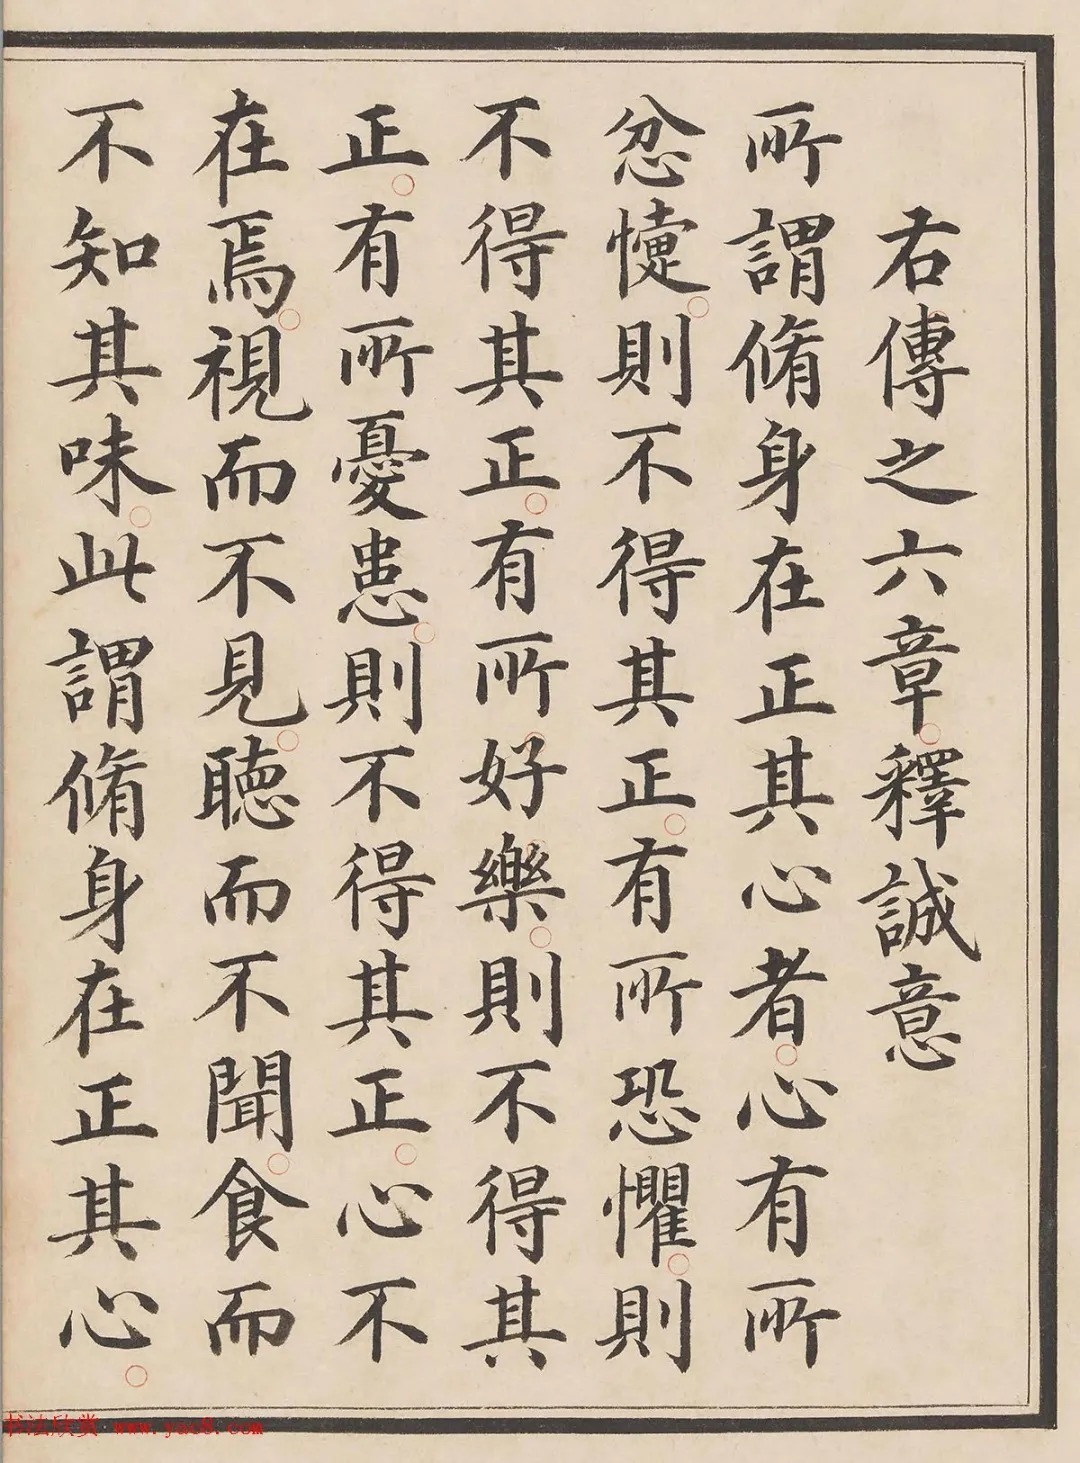 右傳之六章釋誠意
所謂脩身在正其心者心有所
忿懥則不得其正有所恐懼則
不得其正有所好樂則不得其
正有所憂患則不得其正心不
在焉視而不見聽而不聞食而
不知其味此謂脩身在正其心
书法欣赏 www.yac8.com